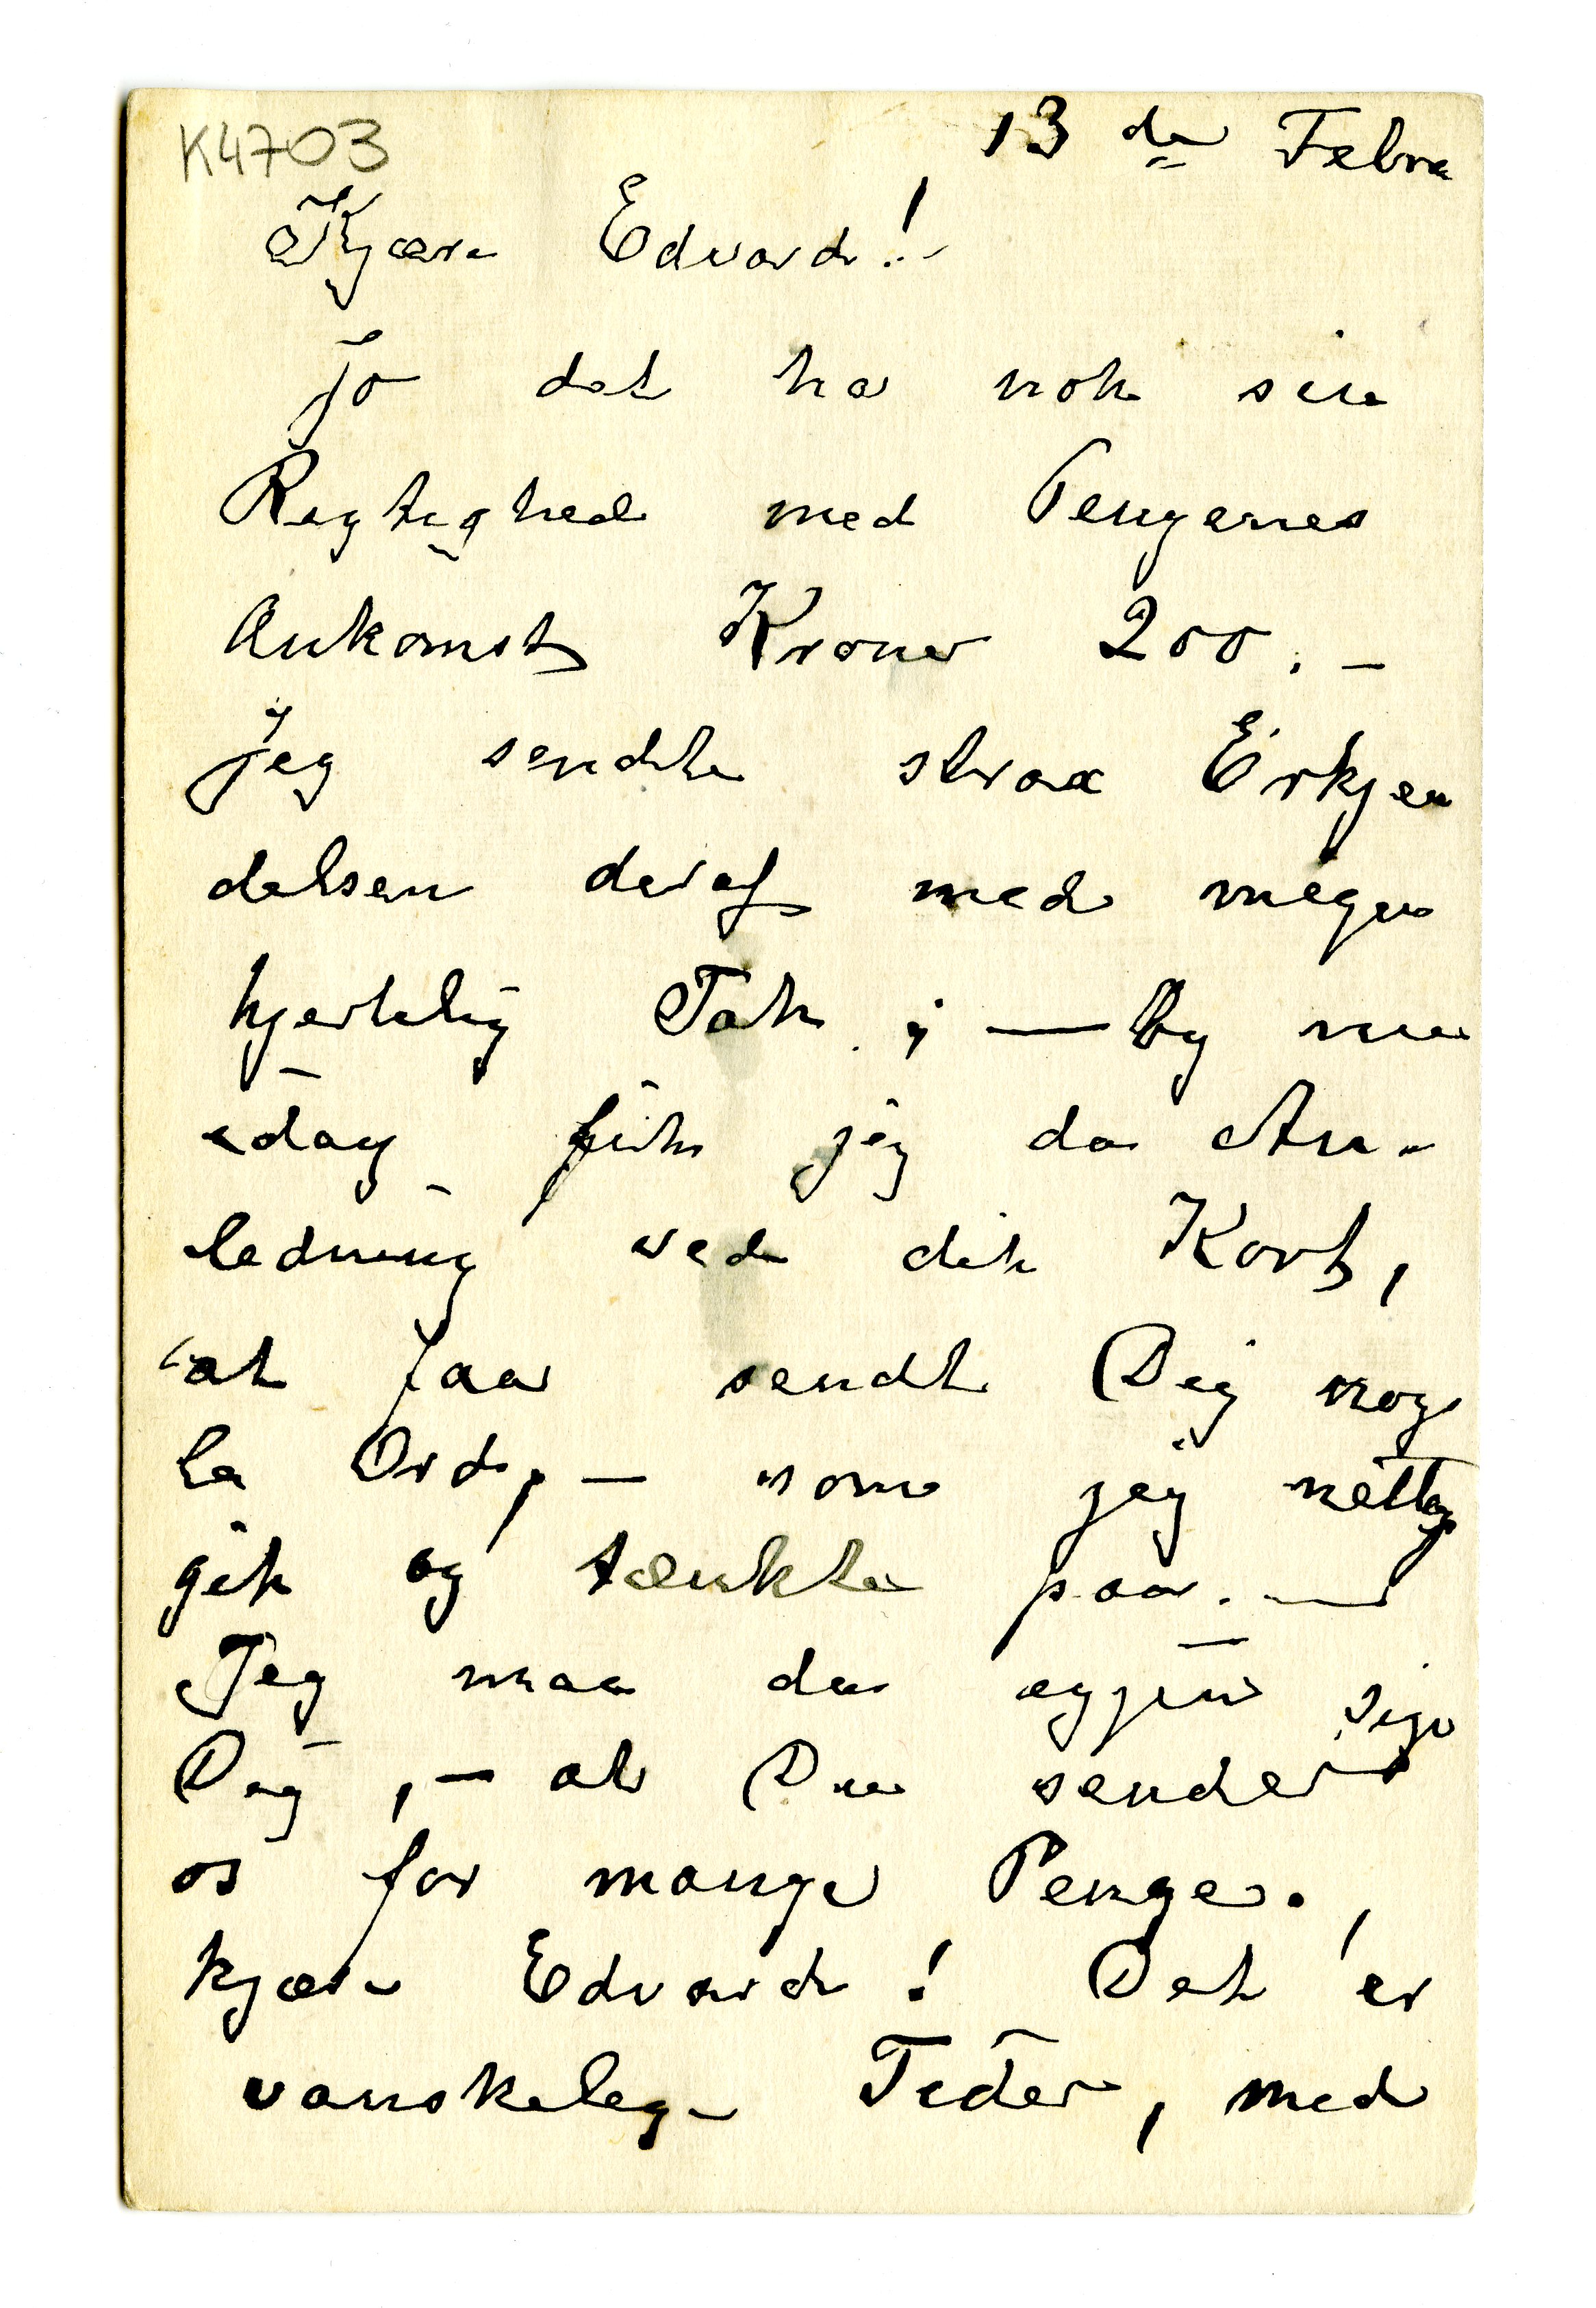 K4703
13 de Febra
Kjære Edvard! –
Jo det ha nok sin
Regtighed med Pengenes
Ankomst Kroner 200. –
Jeg sendte strax Erkjen
delsen deraf med megen
hjertelig Tak ; — Og nu
idag fik jeg da An-
ledning ved dit Kort,
at faa sendt Dig nog
le Ord, – som jeg nettop
gik og tænkte paa. —
Jeg maa da igjen sige
Dig , – at Du sender
os for mange Penge. ,
kjære Edvard! Det er
vanskelige Tider, med